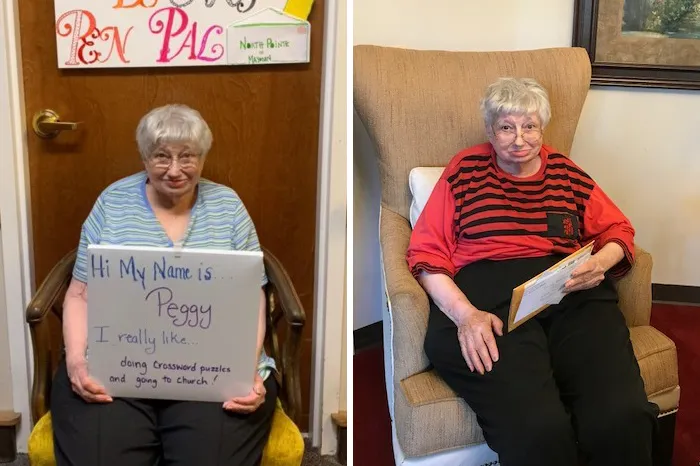 Pen Pal
North Pointe
Hi My Name is....
Peggy
I really like...
doing Crossword puzzles
and going to church!